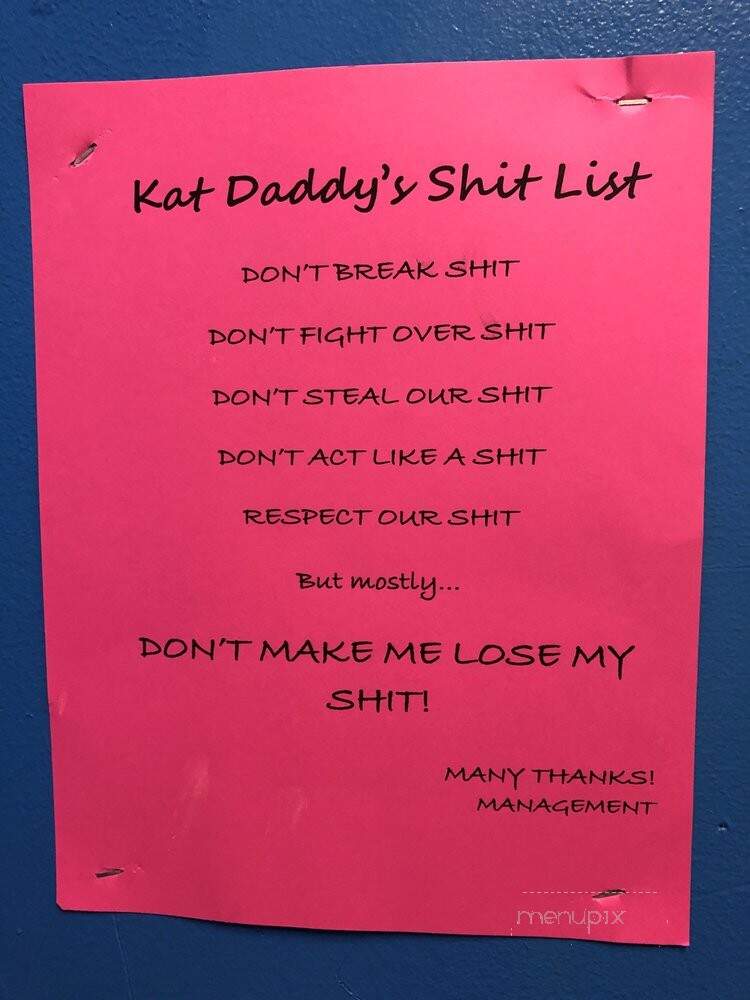 Kat Daddy's Shit List
DON'T BREAK SHIT
DON'T FIGHT OVER SHIT
DON'T STEAL OUR SHIT
DON'T ACT LIKE A SHIT
RESPECT OUR SHIT
But mostly...
DON'T MAKE ME LOSE MY
SHIT!
MANY THANKS!
MANAGEMENT
menupix